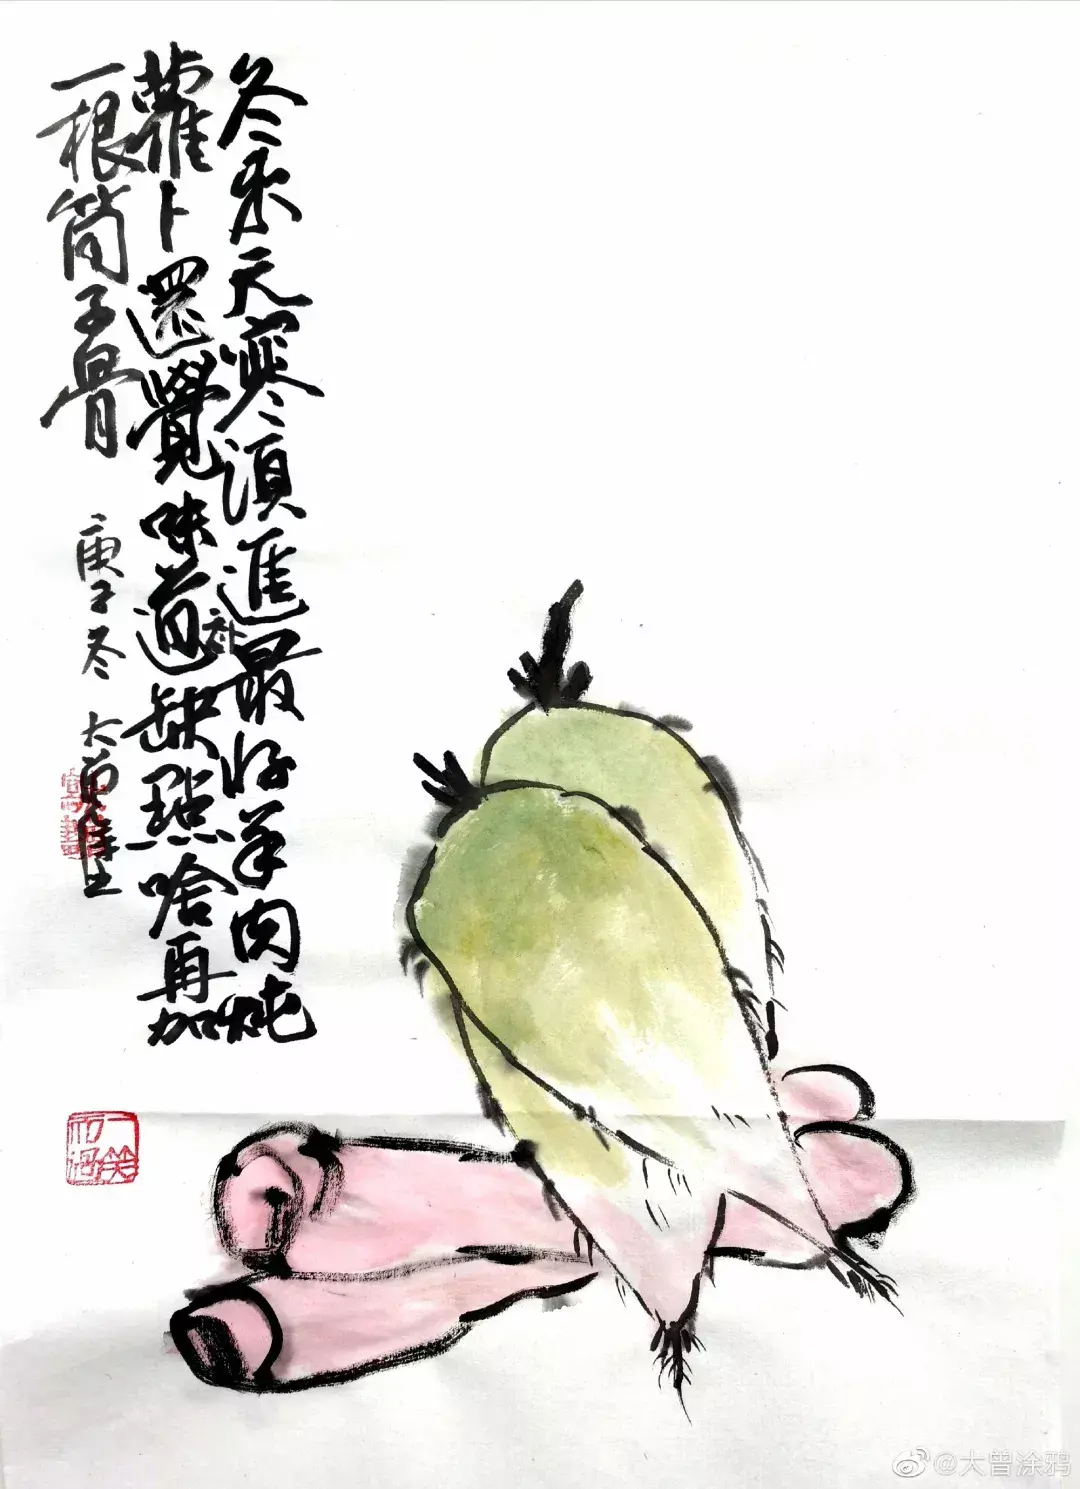 冬来天寒須進补最好羊肉炖
蘿卜還覺味道缺點啥再加
一根筒子骨
庚子冬 大曾
@大曾涂鸦